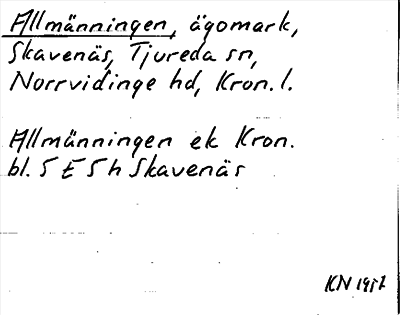 Allmänningen, ägomark,
Skavenäs, Tjureda sn,
Norrvidinge hd, Kron. l.
Allmänningen ek Kron.
bl. 5 E 5 h Skavenäs
KN